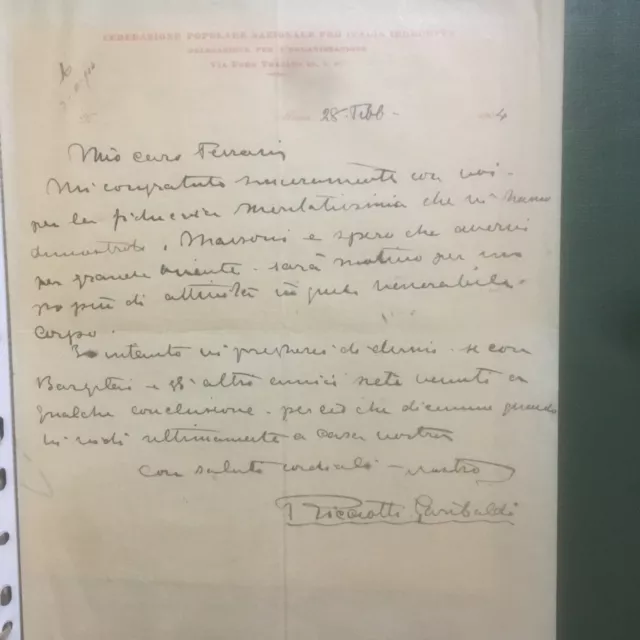 FEDERAZIONE POPOLARE NAZIONALE PRO ITALIA IRREDENTA
PER L'ORGANIZZAZIONE
28 Febb. 4
Mio caro Ferraris
Mi congratulo sinceramente con voi
per la fiducia meritatissima che vi hanno
dimostrato i Massoni e spero che avervi
per grande sarà motivo per un
po più di attività in quel venerabile
corpo.
In intanto vi pregherei di dirmi se con
e gli altri amici siete venuto a
qualche conclusione per ciò che dicemmo quando
vi vidi ultimamente a casa nostra
con saluto cordiale vostro
Ricciotti Garibaldi